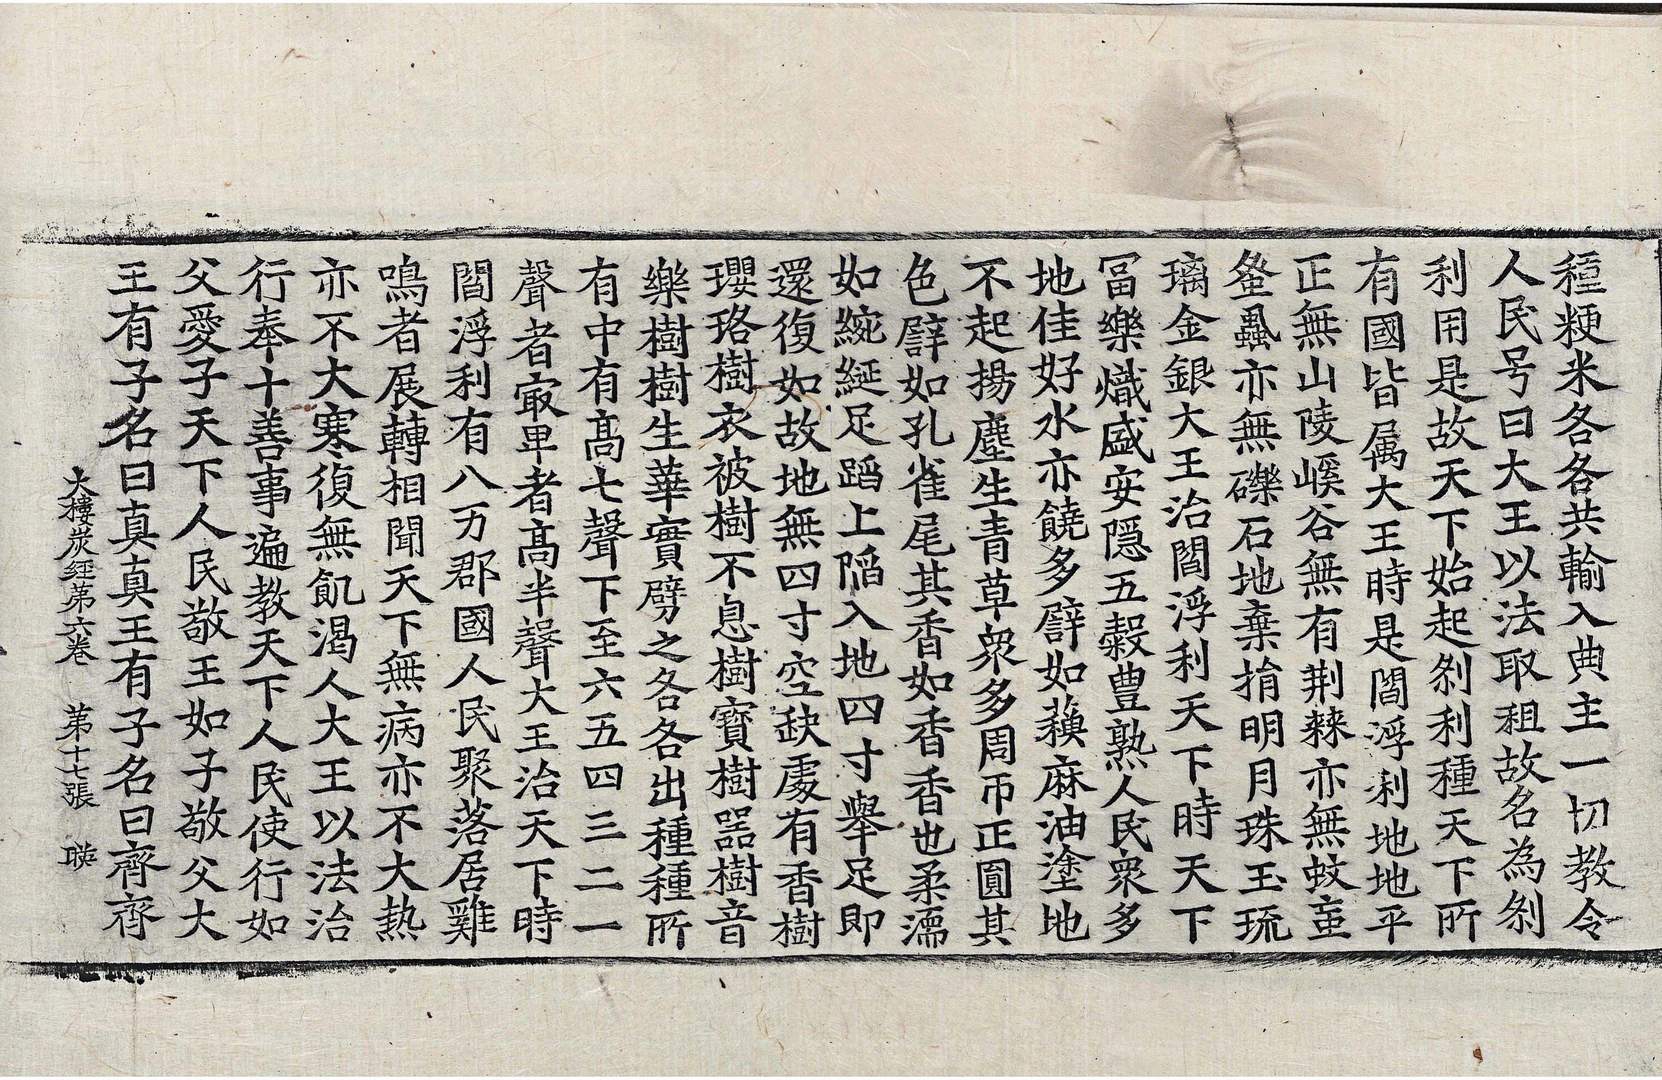 種粳米各各共輸入典主一切教令
人民号曰大王以法取租故名為剎
利用是故天下始起剎利種天下所
有國皆属大王時是閻浮利地地平
正無山陵嵠谷無有荆棘亦無蚊䖟
蚤蝨亦無礫石地棄捐明月珠玉琉
璃金銀大王治閻浮利天下時天下
冨樂熾盛安隠五榖豊熟人民衆多
地佳好水亦饒多譬如蘱麻油塗地
不起揚塵生青草衆多周帀正圎其
色譬如孔雀尾其香如香香也柔濡
如綩綖足蹈上陷入地四寸舉足即
還復如故地無四寸空缺處有香樹
瓔珞樹衣被樹不息樹寶樹器樹音
樂樹樹生華實劈之各各出種種所
有中有髙七聲下至六五四三二一
聲者㝡卑者髙半聲大王治天下時
閻浮利有八万郡國人民聚落居雞
鳴者展轉相聞天下無病亦不大熱
亦不大寒復無飢渴人大王以法治
行奉十善事遍教天下人民使行如
父愛子天下人民敬王如子敬父大
王有子名曰真真王有子名曰齊齊
大樓炭経第六卷　第十七張　䏴